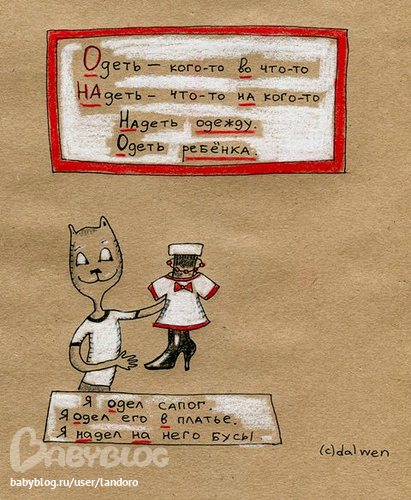 Одеть – кого-то во что-то
НАдеть – что-то на кого-то
Надеть одежду.
Одеть ребёнка.
Я одел сапог.
Я одел его в платье.
Я надел на него бусы.
(c)dalwen
BABYBLOG
babyblog.ru/user/landoro